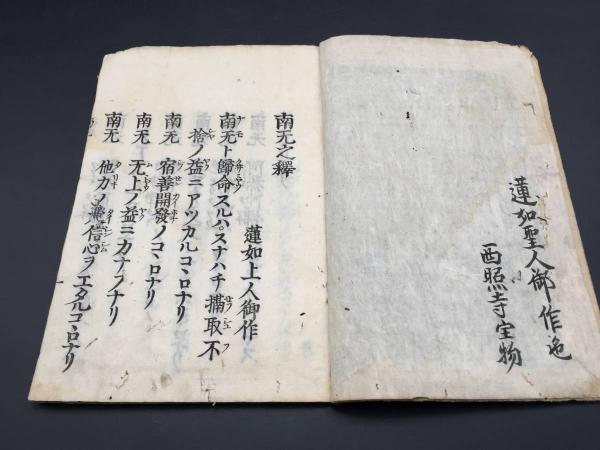 蓮如聖人御作
西照寺宝物
南无之釋
蓮如上人御作
南无ト歸命スルハスナハチ攝取不
捨ノ益ニアツカルコヽロナリ
南无 宿善開發ノコヽロナリ
南无 无上ノ益ニカナフナリ
南无 他力ノ信心ヲエタルコヽロナリ